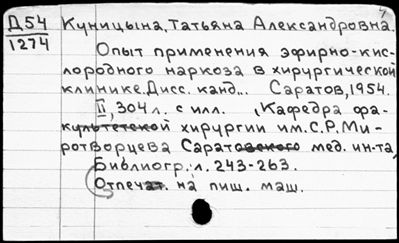 Д54 Куницына, Татьяна Александровна. 4
1274
Опыт применения эфирно-кис-
лородного наркоза в хирургической
клинике. Дисс. канд... Саратов, 1954.
II, 304 л. с илл. (Кафедра фа-
культетской хирургии им. С.Р. Ми-
ротворцева Саратовского мед. ин-та,
Библиогр.: л. 243-263.
Отпечат. на пиш. маш.